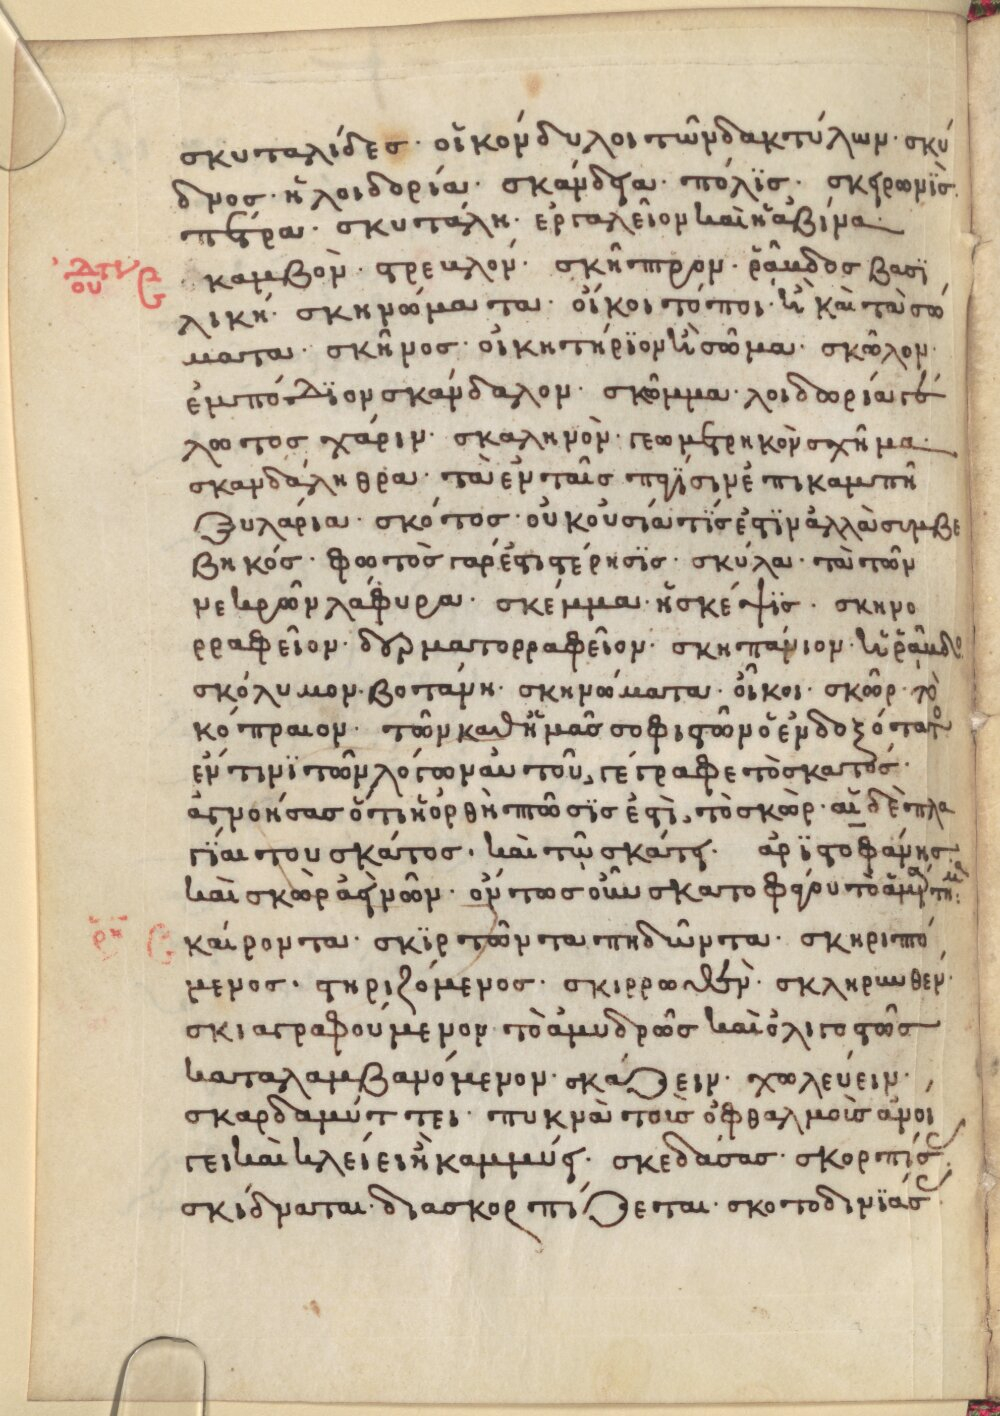 σκυταλίδες· οἱ κόνδυλοι τῶν δακτύλων· σκύ
δμος· ἡ λοιδορία· σκάνδεια· πόλϊς· σκειρωνῒς
πέτρα· σκυτάλη· ἐργαλεῖον καὶ ἡ ἀξίνα·
σκαμβὸν· στρεβλόν· σκῆπτρον· ῥάβδος βασϊ
λική· σκηνώματα· οἶκοι τόποι· ἢ καὶ τὰ σώ
ματα· σκῆνος· οἰκητήρϊον ἢ σῶμα· σκῶλον·
ἐμπόδϊον σκάνδαλον· σκῶμμα· λοιδωρία γέ
λωτος χάριν· σκαληνὸν· γεωμετρηκὸν σχῆμα·
σκανδάληθρα· τὰ ἐν ταῖς παγίσιν ἐπικαμπῆ
ξυλάρια· σκότος· οὐκ οὐσία τίς ἐστϊν ἀλλὰ συμβε
βηκός· φωτὸς γάρ ἐστι στέρησϊς· σκύλα· τὰ τῶν
νεκρῶν λάφυρα· σκέμμα· ἡ σκέψϊς· σκηνο
ρραφεῖον· δερματορραφεῖον· σκηπάνιον· ἡ ῥάβδος
σκόλυμον· βοτάνη· σκηνώματα· οἶκοι· σκῶρ· τὸ
κόπραιον· τῶν καθ ἡμᾶς σοφιστῶν ὁ ἐνδοξότατος
ἐν τινϊ τῶν λόγων αὐτοῦ, γέγραφε τὸ σκατός·
ἀγνοήσας ὅτι ἡ ὀρθὴ πτῶσϊς ἐστὶ, τὸ σκὼρ· αἱ δὲ πλα
γϊαι του σκάτος· καὶ τῷ σκάτει· ἀρϊστοφάνης
καὶ σκὼρ ἀείνων· ὄντως οὖν σκατοφάγου τὸ ἁμάρτημα·
σκαίροντα· σκϊρτῶντα πηδῶντα· σκηριπτό
μενος· στηριζόμενος· σκιρρωθὲν· σκληρωθέν·
σκιαγραφούμενον· τὸ ἀμυδρῶς καὶ ὀλιγοστῶς
καταλαμβανόμενον· σκάζειν· χωλεύειν·
σκαρδαμύττει· πυκνὰ τοῖς ὀφθαλμοῖς ἀνοί
γει καὶ κλείει ἢ καμμύει· σκεδάσας· σκορπίσας·
σκίδναται· διασκορπίζεται· σκοτοδινϊάσας·